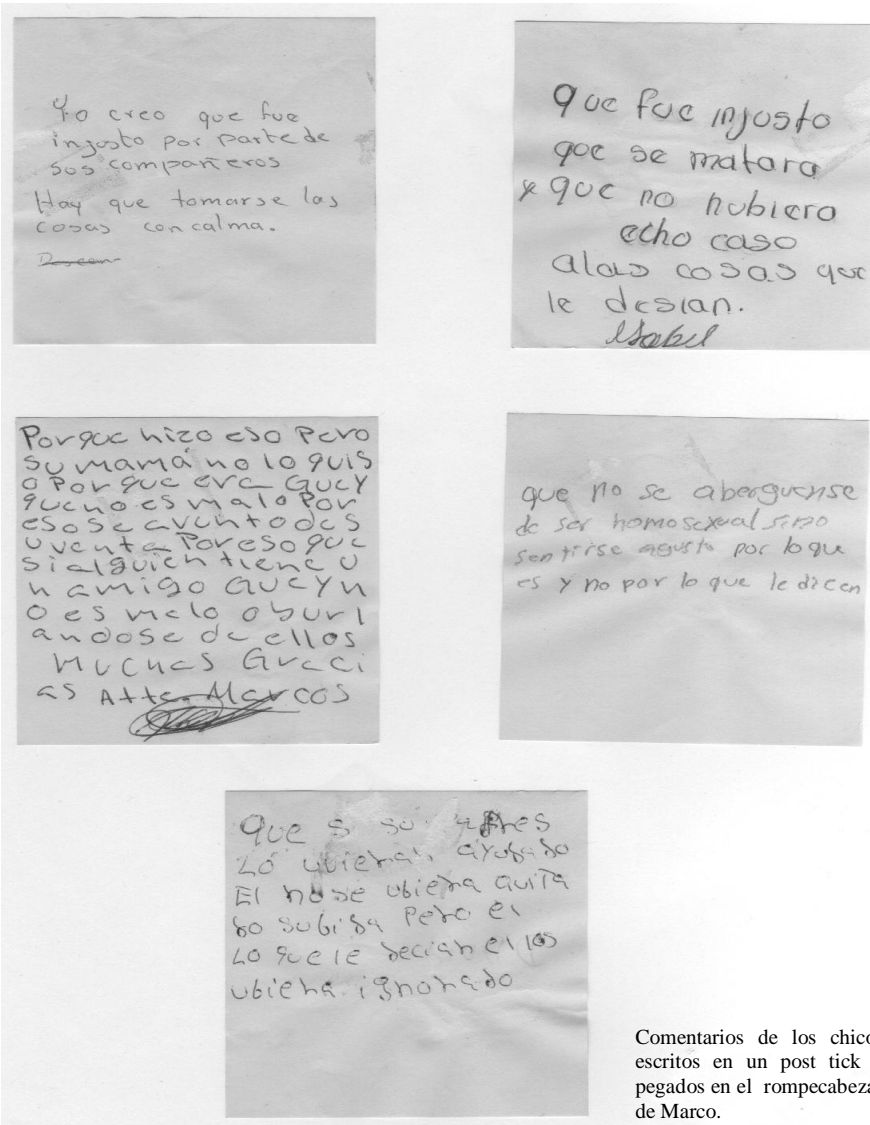 Yo creo que fue
injusto por parte de
sus compañeros
Hay que tomarse las
cosas con calma.
que fue injusto
que se matara
y que no hubiera
echo caso
alas cosas que
le desian.
Isabel
Porque hizo eso Pero
su mamá no lo quis
o Por que era Guey
que no es malo Por
eso se avento des
u venta Por eso que
si alguien tiene u
n amigo Guey n
o es malo o burl
andose de ellos
Muchas Graci
as Atte. Marcos
que no se aberguense
de ser homosexual sino
sentirse agusto por lo que
es y no por lo que le dicen
Que su
Lo ubieran ayudado
El no se ubiera quita
do subida Pero el
Lo que le decian ellos
ubiera ignorado
Comentarios de los chico
escritos en un post tick
pegados en el rompecabeza
de Marco.